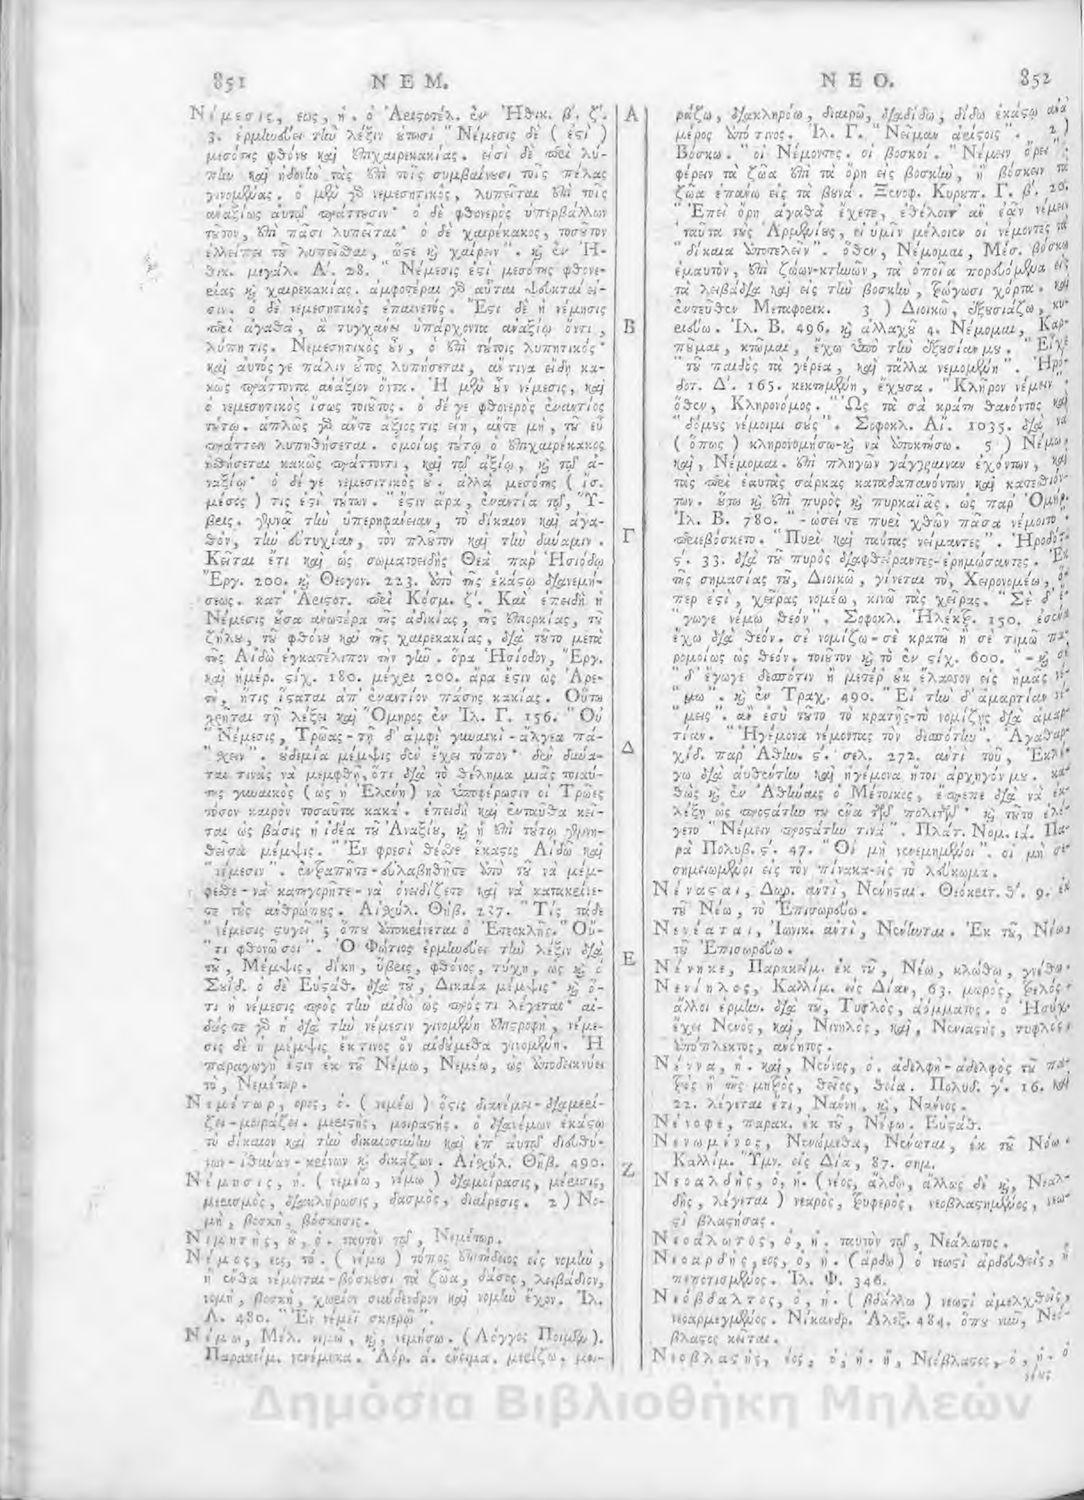 851 ΝΕΜ.
Νέμεσις, εως, ἡ. ὁ Ἀριστοτέλ. ἐν Ἠθικ. β΄. ζ΄.
3. ἑρμηνεύει τὴν λέξιν οὑτωσί "Νέμεσις δὲ (ἐστὶ)
μεσότης φθόνου καὶ ἐπιχαιρεκακίας. εἰσὶ δὲ περὶ λύ-
πην καὶ ἡδονὴν τὰς ἐπὶ τοῖς συμβαίνουσι τοῖς πέλας
γινομένας. ὁ μὲν γὰρ νεμεσητικὸς, λυπεῖται ἐπὶ τοῖς
ἀναξίως αὐτοῦ πράττουσιν· ὁ δὲ φθονερὸς ὑπερβάλλων
τοῦτον, ἐπὶ πᾶσι λυπεῖται· ὁ δὲ χαιρέκακος, τοσοῦτον
ἐλλείπει τοῦ λυπεῖσθαι, ὥστε καὶ χαίρειν". καὶ ἐν Ἠ-
θικ. μεγάλ. Α΄. 28. "Νέμεσις ἐστὶ μεσότης φθονε-
ρίας καὶ χαιρεκακίας. ἀμφότεραι γὰρ αὗται ψεκταί εἰ-
σιν. ὁ δὲ νεμεσητικὸς ἐπαινετός. Ἔστι δὲ ἡ νέμησις
περὶ ἀγαθὰ, ἃ τυγχάνει ὑπάρχοντα ἀναξίῳ ὄντι,
λύπη τις. Νεμεσητικὸς οὖν, ὁ ἐπὶ τούτοις λυπητικός·
καὶ αὐτός γε πάλιν οὗτος λυπήσεται, ἄν τινα εἴδῃ κα-
κῶς πράττοντα ἀνάξιον ὄντα. Ἡ μὲν οὖν νέμεσις, καὶ
ὁ νεμεσητικὸς ἴσως τοιοῦτος. ὁ δέ γε φθονερὸς ἐναντίος
τούτῳ. ἁπλῶς γὰρ ἄν τε ἄξιος τις εἴη, ἄν τε μὴ, τοῦ εὖ
πράττειν λυπηθήσεται. ὁμοίως τούτῳ ὁ ἐπιχαιρέκακος
ἡσθήσεται κακῶς πράττοντι, καὶ τῷ ἀξίῳ, καὶ τῷ ἀ-
ναξίῳ· ὁ δέ γε νεμεσιτικὸς οὔ. ἀλλὰ μεσότης (ἴσ.
μέσος) τις ἐστὶ τούτων. "ἔστιν ἄρα, ἐναντία τῷ, Ὕ-
βρις. κρίνει τὴν ὑπερηφάνειαν, τὸ δίκαιον καὶ ἀγα-
θὸν, τὴν εὐτυχίαν, τὸν πλοῦτον καὶ τὴν δύναμιν.
Κεῖται ἔτι καὶ ὡς σωματοειδὴς Θεὰ παρ' Ἡσιόδῳ
Ἔργ. 200. καὶ Θεογον. 223. ἀπὸ τῆς ἑκάστῳ διανεμή-
σεως. κατ' Ἀριστοτ. περὶ Κόσμ. ζ΄. Καὶ ἐπειδὴ ἡ
Νέμεσις οὖσα ἀνωτέρα τῆς ἀδικίας, τῆς ἐπιορκίας, τοῦ
ζήλου, τοῦ φθόνου καὶ τῆς χαιρεκακίας, διὰ τοῦτο μετὰ
τῆς Αἰδῶ ἐγκατέλιπον τὴν γῆν. ὅρα Ἡσίοδον, Ἔργ.
καὶ ἡμέρ. στίχ. 180. μέχρι 200. ἄρα ἔστιν ὡς Ἀρε-
τὴ, ἥτις ἵσταται ἀπ' ἐναντίον πάσης κακίας. Οὕτω
χρῆται τῇ λέξει καὶ Ὅμηρος ἐν Ἰλ. Γ. 156. "Οὐ
"Νέμεσις, Τρῶας-τῇ δ' ἀμφὶ γυναικὶ-ἄλγεα πά-
"σχειν". οὐδεμία μέμψις δὲν ἔχει τόπον· δὲν δύνα-
ται τινὰς νὰ μεμφθῇ, ὅτι διὰ τὸ θέλημα μιᾶς τοιαύ-
της γυναικὸς (ὡς ἡ Ἑλένη) νὰ ὑποφέρωσιν οἱ Τρῶες
τόσον καιρὸν τοσαῦτα κακά. ἐπειδὴ καὶ ἐνταῦθα κεῖ-
ται ὡς βάσις ἡ ἰδέα τοῦ Ἀναξίου, καὶ ἡ ἐπὶ τούτῳ
μέμψις. "Ἐν φρεσὶ θέσθε ἕκαστος Αἰδῶ καὶ
"νέμεσιν". ἐντραπῆτε-εὐλαβηθῆτε ἀπὸ τοῦ νὰ μέμ-
φεσθε-νὰ κατηγορῆτε-νὰ ὀνειδίζετε καὶ νὰ κατακρίνε-
τε τοὺς ἀνθρώπους. Αἰσχύλ. Θήβ. 237. "Τίς τάδε
"νέμεσις στυγεῖ"; ὅπου ὑποκρίνεται ὁ Ἐτεοκλῆς. "Οὔ-
"τι φθονῶ σοι". Ὁ Φώτιος ἑρμηνεύει τὴν λέξιν διὰ
τοῦ, Μέμψις, δίκη, ὕβρις, φθόνος, τύχη, ὡς καὶ ὁ
Σουΐδ. ὁ δὲ Εὐστάθ. διὰ τοῦ, Δικαία μέμψις· καὶ ὅ-
τι ἡ νέμεσις πρὸς τὴν αἰδῶ ὡς πρός τι λέγεται· αἰ-
δώς τε γὰρ ἡ διὰ τὴν νέμεσιν γινομένη ἐπιστροφὴ, νέμε-
σις δὲ ἡ μέμψις ἔκ τινος ὃν αἰδούμεθα γινομένη. Ἡ
παραγωγὴ ἔστιν ἐκ τοῦ Νέμω, Νεμέω, ὡς ὑποδεικνύει
τὸ, Νεμέτωρ.
Νεμέτωρ, ορος, ὁ. (νεμέω) ὅστις διανέμει-διαμερί-
ζει-μοιράζει. μεριστὴς, μοιραστής. ὁ διανέμων ἑκάστῳ
τὸ δίκαιον καὶ τὴν δικαιοσύνην καὶ ἐπ' αὐτῷ διευθύ-
νων-ἰθύναν-κρίνων καὶ δικάζων. Αἰσχύλ. Θήβ. 490.
Νέμησις, ἡ. (νεμέω, νέμω) διαμοίρασις, μέρισις,
μερισμὸς, διακλήρωσις, δασμὸς, διαίρεσις. 2) Νο-
μὴ, βοσκὴ, βόσκησις.
Νεμητὴς, οῦ, ὁ. ταυτὸν τῷ, Νεμέτωρ.
Νέμος, εος, τό. (νέμω) τόπος ἐπιτήδειος εἰς νομὴν,
ἢ ἔνθα νέμονται-βόσκουσι τὰ ζῶα, δάσος, λειβάδιον,
νομὴ, βοσκὴ, χωρίον σύνδενδρον καὶ νομὴν ἔχον. Ἰλ.
Λ. 480. "Ἐν νέμεϊ σκιερῷ".
Νέμω, Μέλ. νεμῶ, καὶ, νεμήσω. (Λόγγος Ποιμέν).
Παρακείμ. νενέμηκα. Ἀόρ. ά. ἔνειμα. μερίζω, μοι-
Α
Β
Γ
Δ
Ε
Ζ
ΝΕΟ. 852
ράζω, διακληρόω, διαιρῶ, διαδίδω, δίδω ἑκάστῳ ἀνὰ
μέρος ἀπό τινος. Ἰλ. Γ. "Νεῖμαν ἀρίστοις". 2)
Βόσκω. "οἱ Νέμοντες. οἱ βοσκοί. "Νέμειν ὄρει";
φέρειν τὰ ζῶα ἐπὶ τὰ ὄρη εἰς βοσκὴν, ἢ βόσκειν τὰ
ζῶα ἐπάνω εἰς τὰ βουνά. Ξενοφ. Κυρουπ. Γ. β΄. 20.
"Ἐπεὶ ὄρη ἀγαθὰ ἔχετε, ἐθέλοιτ' ἂν ἐᾶν νέμειν
"ταῦτα τοὺς Ἀρμενίους, εἰ ὑμῖν μέλοιεν οἱ νέμοντες τὰ
"δίκαια ἀποτελεῖν". ὅθεν, Νέμομαι, Μέσ. βόσκω
ἐμαυτὸν, ἐπὶ ζώων-κτηνῶν, τὰ ὁποῖα πορευόμενα εἰς
τὰ λειβάδια καὶ εἰς τὴν βοσκὴν, τρώγωσι χόρτα. καὶ
ἐντεῦθεν Μεταφορικ. 3) Διοικῶ, ἐξουσιάζω, κυ-
ριεύω. Ἰλ. Β. 496. καὶ ἀλλαχοῦ 4. Νέμομαι, Καρ-
ποῦμαι, κτῶμαι, ἔχω ὑπὸ τὴν ἐξουσίαν μου. "Εἶχε
"τοῦ παιδὸς τὰ γέρεα, καὶ τἄλλα νεμομένη". Ἡρό-
δοτ. Δ΄. 165. κεκτημένη, ἔχουσα. "Κλῆρον νέμειν"
ὅθεν, Κληρονόμος. "Ὡς τὰ σὰ κράτη θανόντος καὶ
"δόμους νέμοιμι σούς". Σοφοκλ. Αἴ. 1035. διὰ νὰ
(ὅπως) κληρονομήσω-καὶ νὰ ἀποκτήσω. 5) Νέμω,
καὶ, Νέμομαι. ἐπὶ πληγῶν γάγγραιναν ἐχόντων, καὶ
τὰς περὶ ἑαυτὰς σάρκας καταδαπανόντων καὶ κατεσθιόν-
των. οὕτω καὶ ἐπὶ πυρὸς καὶ πυρκαϊᾶς. ὡς παρ' Ὁμήρ.
Ἰλ. Β. 780. "-ὡσεί τε πυρὶ χθὼν πᾶσα νέμοιτο·
περιεβόσκετο. "Πυρὶ καὶ ταύτας νείμαντες". Ἡρόδοτ.
ς΄. 33. διὰ τοῦ πυρὸς διαφθείραντες-ἐρημώσαντες. Ἐκ
τῆς σημασίας τοῦ, Διοικῶ, γίνεται τὸ, Χειρονομέω, ὅ
περ ἐστὶ, χεῖρας νομέω, κινῶ τὰς χεῖρας. "Σὲ δ' ἔ-
"γωγε νέμω θεόν". Σοφοκλ. Ἠλέκτρ. 150.
ἔχω διὰ θεόν. σὲ νομίζω-σὲ κρατῶ ἢ σὲ τιμῶ πα-
ρομοίως ὡς θεόν. τοιοῦτον καὶ τὸ ἐν στίχ. 600. "-καὶ σὲ
"δ' ἔγωγε δεσπότιν ἢ μητέρ' οὐκ ἔλασσον εἰς ἡμᾶς νέ-
"μω". καὶ ἐν Τραχ. 490. "Εἰ τὴν δ' ἁμαρτίαν νέ-
"μεις". ἂν ἐσὺ τοῦτο τὸ κρατῇς-τὸ νομίζῃς διὰ ἁμαρ-
τίαν. "Ἡγεμόνα νέμοντας τὸν δεσπότην". Ἀγαθαρ-
χίδ. παρ' Ἀθήν. ς΄. σελ. 272. ἀντὶ τοῦ, Ἐκλέ-
γω διὰ αὐθέντην καὶ ἡγεμόνα ἤτοι ἀρχηγόν μου. κα-
θὼς καὶ ἐν Ἀθήναις ὁ Μέτοικος, ἔπρεπε διὰ νὰ ἐκ-
λέξῃ ὡς προστάτην του ἕνα τῶν πολιτῶν· καὶ τοῦτο ἐλέ-
γετο "Νέμειν προστάτην τινά". Πλάτ. Νομ. ιά. Πα-
ρὰ Πολυβ. ς΄. 47. "Οἱ μὴ νενεμημένοι". οἱ μὴ σε-
σημειωμένοι εἰς τὸν πίνακα-εἰς τὸ λεύκωμα.
Νένασαι, Δωρ. ἀντὶ, Νένησαι. Θεόκριτ. θ΄. 9. ἐκ
τοῦ Νέω, τὸ Ἐπισωρεύω.
Νενέαται, Ἰωνικ. ἀντὶ, Νένηνται. Ἐκ τοῦ, Νέω,
τὸ Ἐπισωρεύω.
Νένηκε, Παρακείμ. ἐκ τοῦ, Νέω, κλώθω, γνέθω.
Νενίηλος, Καλλίμ. εἰς Δίαν, 63. μωρὸς, τρελός·
ἄλλοι ἑρμην. διὰ τοῦ, Τυφλὸς, ἀόμματος. ὁ Ἡσύχ.
ἔχει Νενὸς, καὶ, Νινηλὸς, καὶ, Νενιαστὴς, τυφλὸς,
ἀπόπλεκτος, ἀνόητος.
Νέννα, ἡ. καὶ, Νέννος, ὁ. ἀδελφὴ-ἀδελφὸς τοῦ πα-
τρὸς ἢ τῆς μητρὸς, θεῖος, θεία. Πολυδ. γ΄. 16. καὶ
22. λέγεται ἔτι, Νάννη, καὶ, Νάννος.
Νένοφε, παρακ. ἐκ τοῦ, Νέφω. Εὐστάθ.
Νενωμένος, Νενώμεθα, Νένωται, ἐκ τοῦ Νόω·
Καλλίμ. Ὕμν. εἰς Δία, 87. σημ.
Νεοαλδὴς, ὁ, ἡ. (νέος, ἄλδω, ἄλλως δὲ καὶ, Νεαλ-
δὴς, λέγεται) νεαρὸς, τρυφερὸς, νεοβλαστημένος, νεω-
στὶ βλαστήσας.
Νεοάλωτος, ὁ, ἡ. ταυτὸν τῷ, Νεάλωτος.
Νεοαρδὴς, εος, ὁ, ἡ. (ἄρδω) ὁ νεωστὶ ἀρδευθεὶς, ἢ
πεποτισμένος. Ἰλ. Φ. 346.
Νεόβδαλτος, ὁ, ἡ. (βδάλλω) νεωστὶ ἀμελχθεὶς,
νεοαρμεγμένος. Νίκανδρ. Ἀλεξ. 484. ὅπου νῦν, Νεό-
βλαστος κεῖται.
Νεοβλαστὴς, έος, ὁ, ἡ. ἢ, Νεόβλαστος, ὁ, ἡ. ὁ
Δημόσια Βιβλιοθήκη Μηλεών